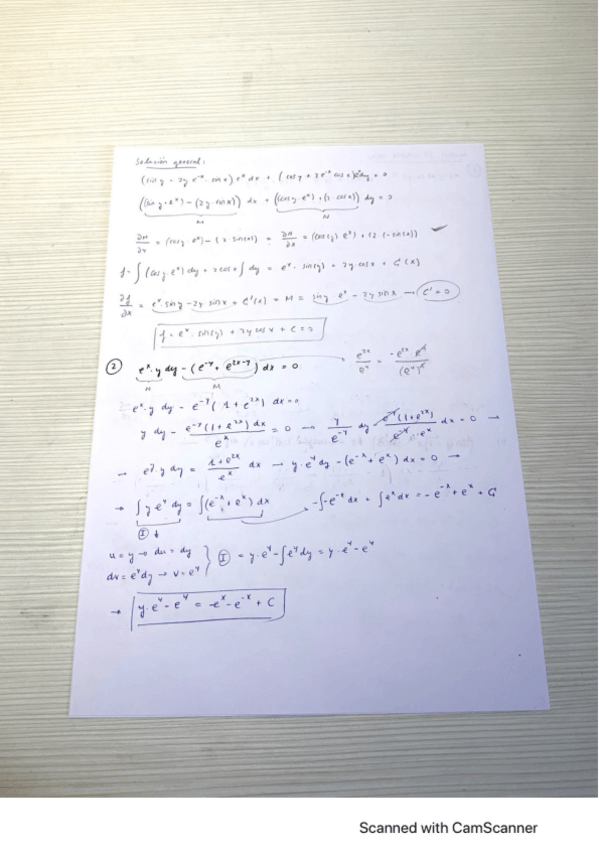 Solución general:
(sin y - 2y e^-x · sin x) e^x dx + (cos y + 2 e^-x cos x) e^x dy = 0
((sin y · e^x) - (2y · sin x)) dx + ((cos y · e^x) + (2 · cos x)) dy = 0
M N
∂M/∂y = (cos y · e^x) - (2 · sin(x)) = ∂N/∂x = (cos(y) e^x) + (2 (-sin(x)))
f = ∫ (cos y · e^x) dy + 2 cos x ∫ dy = e^x · sin(y) + 2y cos x + C'(x)
∂f/∂x = e^x · sin y - 2y sin x + C'(x) = M = sin y e^x - 2y sin x → C' = 0
f = e^x · sin(y) + 2y cos x + C = 0
② e^x · y dy - (e^-y + e^2x-y) dx = 0
N M
e^2x/e^x = -e^2x
e^x · y dy - e^-y (1 + e^2x) dx = 0
y dy - e^-y (1 + e^2x) dx / e^x = 0 → y/e^-y dy - e^-y (1 + e^2x) / e^-y · e^x dx = 0 →
→ e^y · y dy = 1 + e^2x / e^x dx → y · e^y dy - (e^-x + e^x) dx = 0 →
→ ∫ y e^y dy = ∫ (e^-x + e^x) dx -∫ -e^-x dx + ∫ e^x dx = -e^-x + e^x + C
Ⓘ ↓
u = y → du = dy
dv = e^y dy → v = e^y } Ⓘ = y · e^y - ∫ e^y dy = y · e^y - e^y
→ y · e^y - e^y = e^x - e^-x + C
Scanned with CamScanner